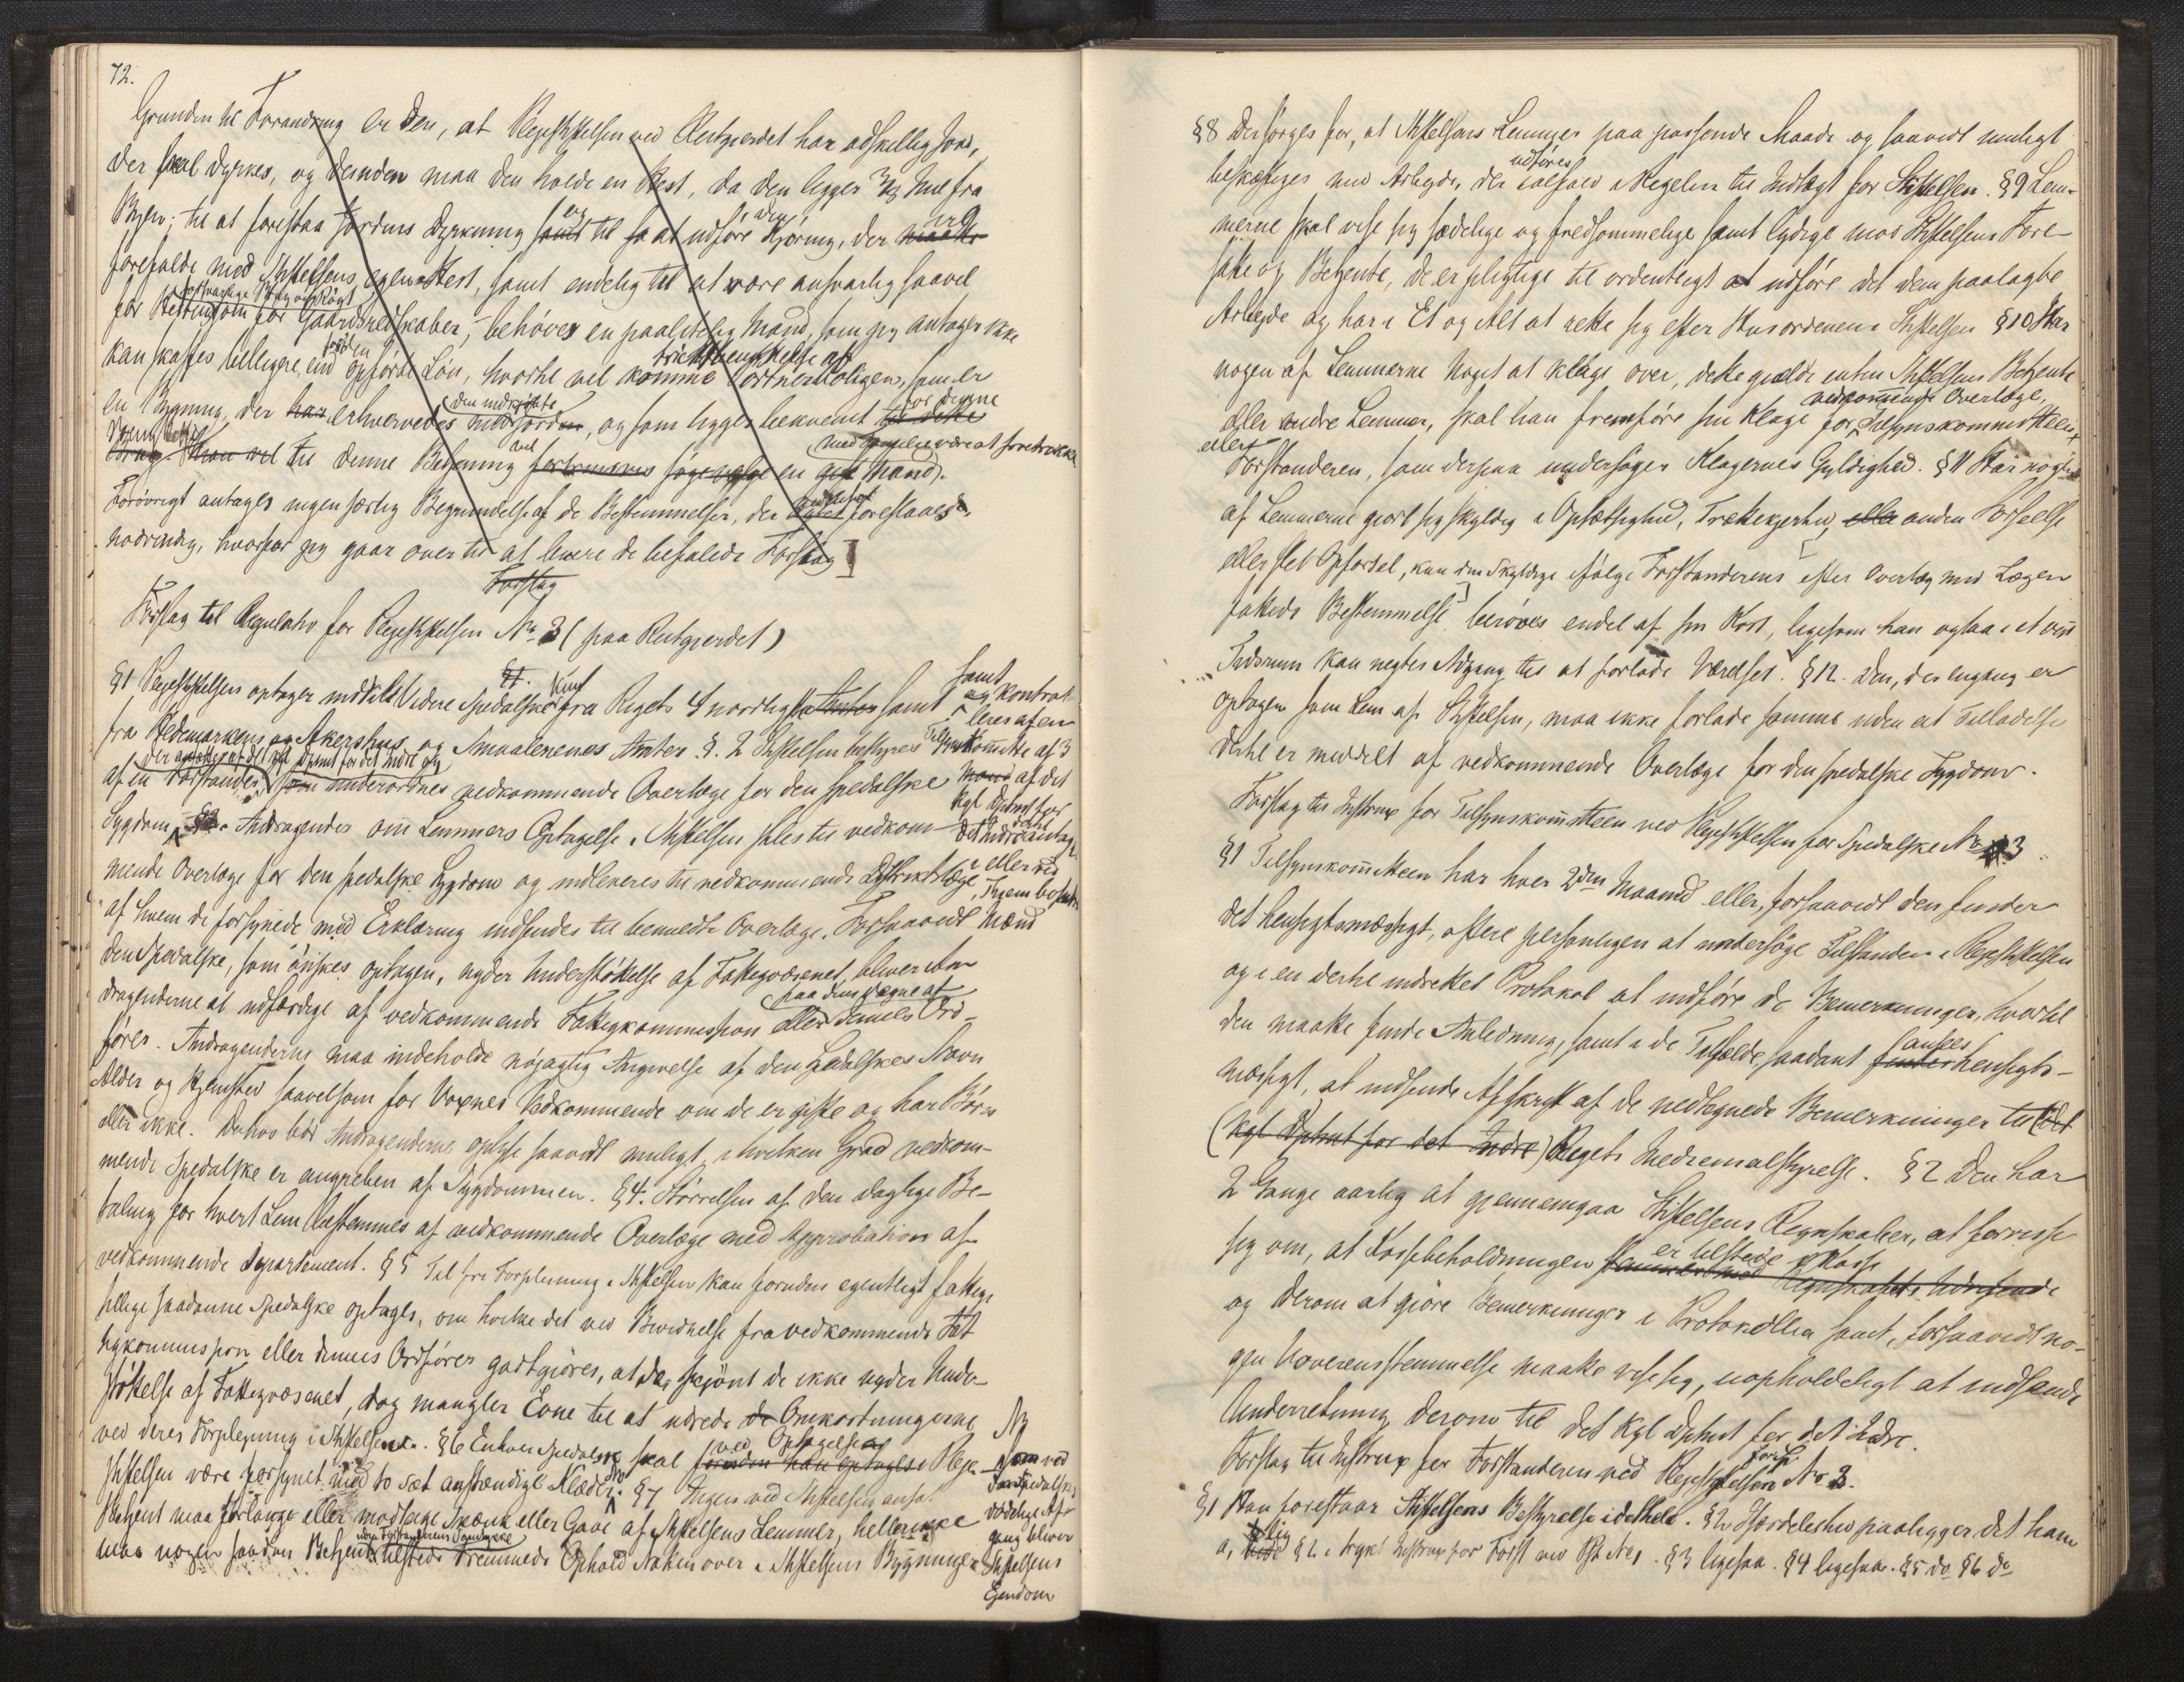 72.
Grunden til Forandring er den, at Plejestiftelsen ved Reitgjerdet har adskillig Jord,
der skal dyrkes, og desuden maa den holde en Hest, da den ligger 3/4 Mil fra
Byen; til at forestaa Jordens Dyrkning samt til at udföre den Kjöring, der maatte
forefalde med Stiftelsens egen Hest, samt endelig til at være ansvarlig saavel
for Hestens forsvarlige som for Gaardsredskaber, behöves en paalidelig Mand, som jeg antager ikke
kan skaffes billigere, end opförte Lön, hvortil vel komme fri Benyttelse af Portnerboligen, som er
en Bygning, der har erhvervedes med Jorden, den indkjöbte og som ligger bekvemt for denne til dette
Brug. Man vil til denne Betjening vel söge en gift Mand.
Forövrigt antages ingen særlig Begrundelse af de Bestemmelser, der forestaaes
nödvendig, hvorfor jeg gaar over til at levere de befalede Forslag]
Forslag
Forslag til Regulativ for Plejestiftelsen No 3 (paa Reitgjerdet)
§1 Plejestiftelsen optager indtil Videre Spedalske kun fra Rigets 4 nordligste Amter samt
fra Hedemarkens og Akershus og Smaalenenes Amter. §. 2 Stiftelsen bestyres
af en Forstander, der ansættes af det kgl Dptmt for det Indre og som underordnes vedkommende Overlæge for den spedalske
Sygdom samt kontrolleres af en Tilsynskommitte af 3 Mænd af det kgl Dptmt for det Indre antagne
Sygdom. §3. Andragender om Lemmers Optagelse i Stiftelsen stiles til vedkom-
mende Overlæge for den spedalske Sygdom og indleveres til vedkommende Distriktslæge,
af hvem de forsynede med Erklæring indsendes til bemeldte Overlæge. Forsaavidt
den Spedalske, som önskes optagen, nyder Understöttelse af Fattigvæsenet, bliver An-
dragenderne at udfærdige af vedkommende Fattigkommission eller paa dens Vegne af dennes Ord-
förer. Andragenderne maa indeholde nöjagtig Angivelse af den Spedalskes Navn
Alder og Hjemsted saavelsom for Voxnes Vedkommende om de er gifte og har Börn
eller ikke. Derhos bör Andragenderne oplyse saavidt muligt, i hvilken Grad vedkom-
mende Spedalske er angreben af Sygdommen. §4. Störrelsen af den daglige Be-
taling for hvert Lem bestemmes af vedkommende Overlæge med Approbation af
vedkommende Departement. §5 Til fri Forplejning i Stiftelsen kan foruden egentligt fattig-
lige saadanne Spedalske optages, om hvilke det ved Bevidnelse fra vedkommende Fat
tigkommission eller dennes Ordförer godtgjöres, at de, skjönt de ikke nyder Under-
stöttelse af Fattigvæsenet, dog mangler Evne til at udrede de Omkostningerne
ved deres Forplejning i Stiftelsen. §6 Enhver Spedalsk skal ved Optagelsen forinden han optages i Pleje-
stiftelsen være forsynet med to Sæt anständige Klæder. §7 Ingen ved Stiftelsen ansat
Betjent maa forlange eller modtage Skjænk eller Gave af Stiftelsens Lemmer, hellerikke
maa nogen saadan Betjent uden Forstanderens Samtykke tilstede Fremmede Ophold Natten over i Stiftelsens Bygninger
NB som ved den Spedalskes dödelige Afgang bliver Stiftelsens Ejendom
§8 Der sörges for, at Stiftelsens Lemmer paa passende Maade og saavidt muligt
beskjæftiges med Arbejde, der udföres i Regelen til Indtægt for Stiftelsen. §9 Lem-
merne skal vise sig sædelige og fredsommelige samt lydige mod Stiftelsens Fore-
satte og Betjente, de er pligtige til ordentligt at udföre det dem paalagte
Arbejde og har i Et og Alt at rette sig efter Husordenen i Stiftelsen §10 Har
nogen af Lemmerne Noget at klage over, dette gjælde enten Stiftelsens Betjente
eller andre Lemmer, skal han fremföre sin Klage for vedkommende Overlæge, Tilsynskommitteen
eller Forstanderen, som derpaa undersöger Klagernes Gyldighed. §11 Har nogen
af Lemmerne gjort sig skyldig i Opsætsighed, Trættekjærhed, eller anden Forseelse
eller slet Opförsel, kan den Skyldige ifölge Forstanderens efter Overlæg med Lægen
fattede Bestemmelse beröves endel af sin Kost, ligesom han ogsaa i et vist
Tidsrum kan negtes Adgang til at forlade Værelset. §12. Den, der engang er
optagen som Lem af Stiftelsen, maa ikke forlade samme uden at Tilladelse
dertil er meddelt af vedkommende Overlæge for den spedalske Sygdom.
Forslag til Instrux for Tilsynskommitteen ved Plejestiftelsen for Spedalske No 3
§1 Tilsynskommitteen har hver 2den Maaned eller, forsaavidt den finder
det hensigtsmæssigt, oftere personligen at undersöge Tilstanden i Plejestiftelsen
og i en dertil indrettet Protokol at indföre de Bemerkninger, hvortil
den maatte finde Anledning, samt i de Tilfælde, saadant ansees finder hensigts-
mæssigt, at indsende Afskrift af de nedtegnede Bemerkninger til (det
(kgl Dptmt for det Indre) Rigets Medicinalstyrelse. §2 Den har
2 Gange aarlig at gjennemgaa Stiftelsens Regnskaber, at forvisse
sig om, at Kassebeholdningen er tilstede i Kassen stemmer med Regnskabets Udvisende
og derom at gjöre Bemerkninger i Protokollen samt, forsaavidt no-
gen Uoverensstemmelse maatte vise sig, uopholdeligt at indsende
Underretning derom til det kgl Dptmt for det Indre.
Forslag til Instrux for Forstanderen ved Plejestiftelsen for Sp. No 3.
§1 Han forestaar Stiftelsens Bestyrelse idethele. §2 Isærdeleshed paaligger det ham
a, lig §2 i trykt Instrux for Forst ved Pst No 1. §3 ligesaa. §4 ligesaa. §5 do §6 do